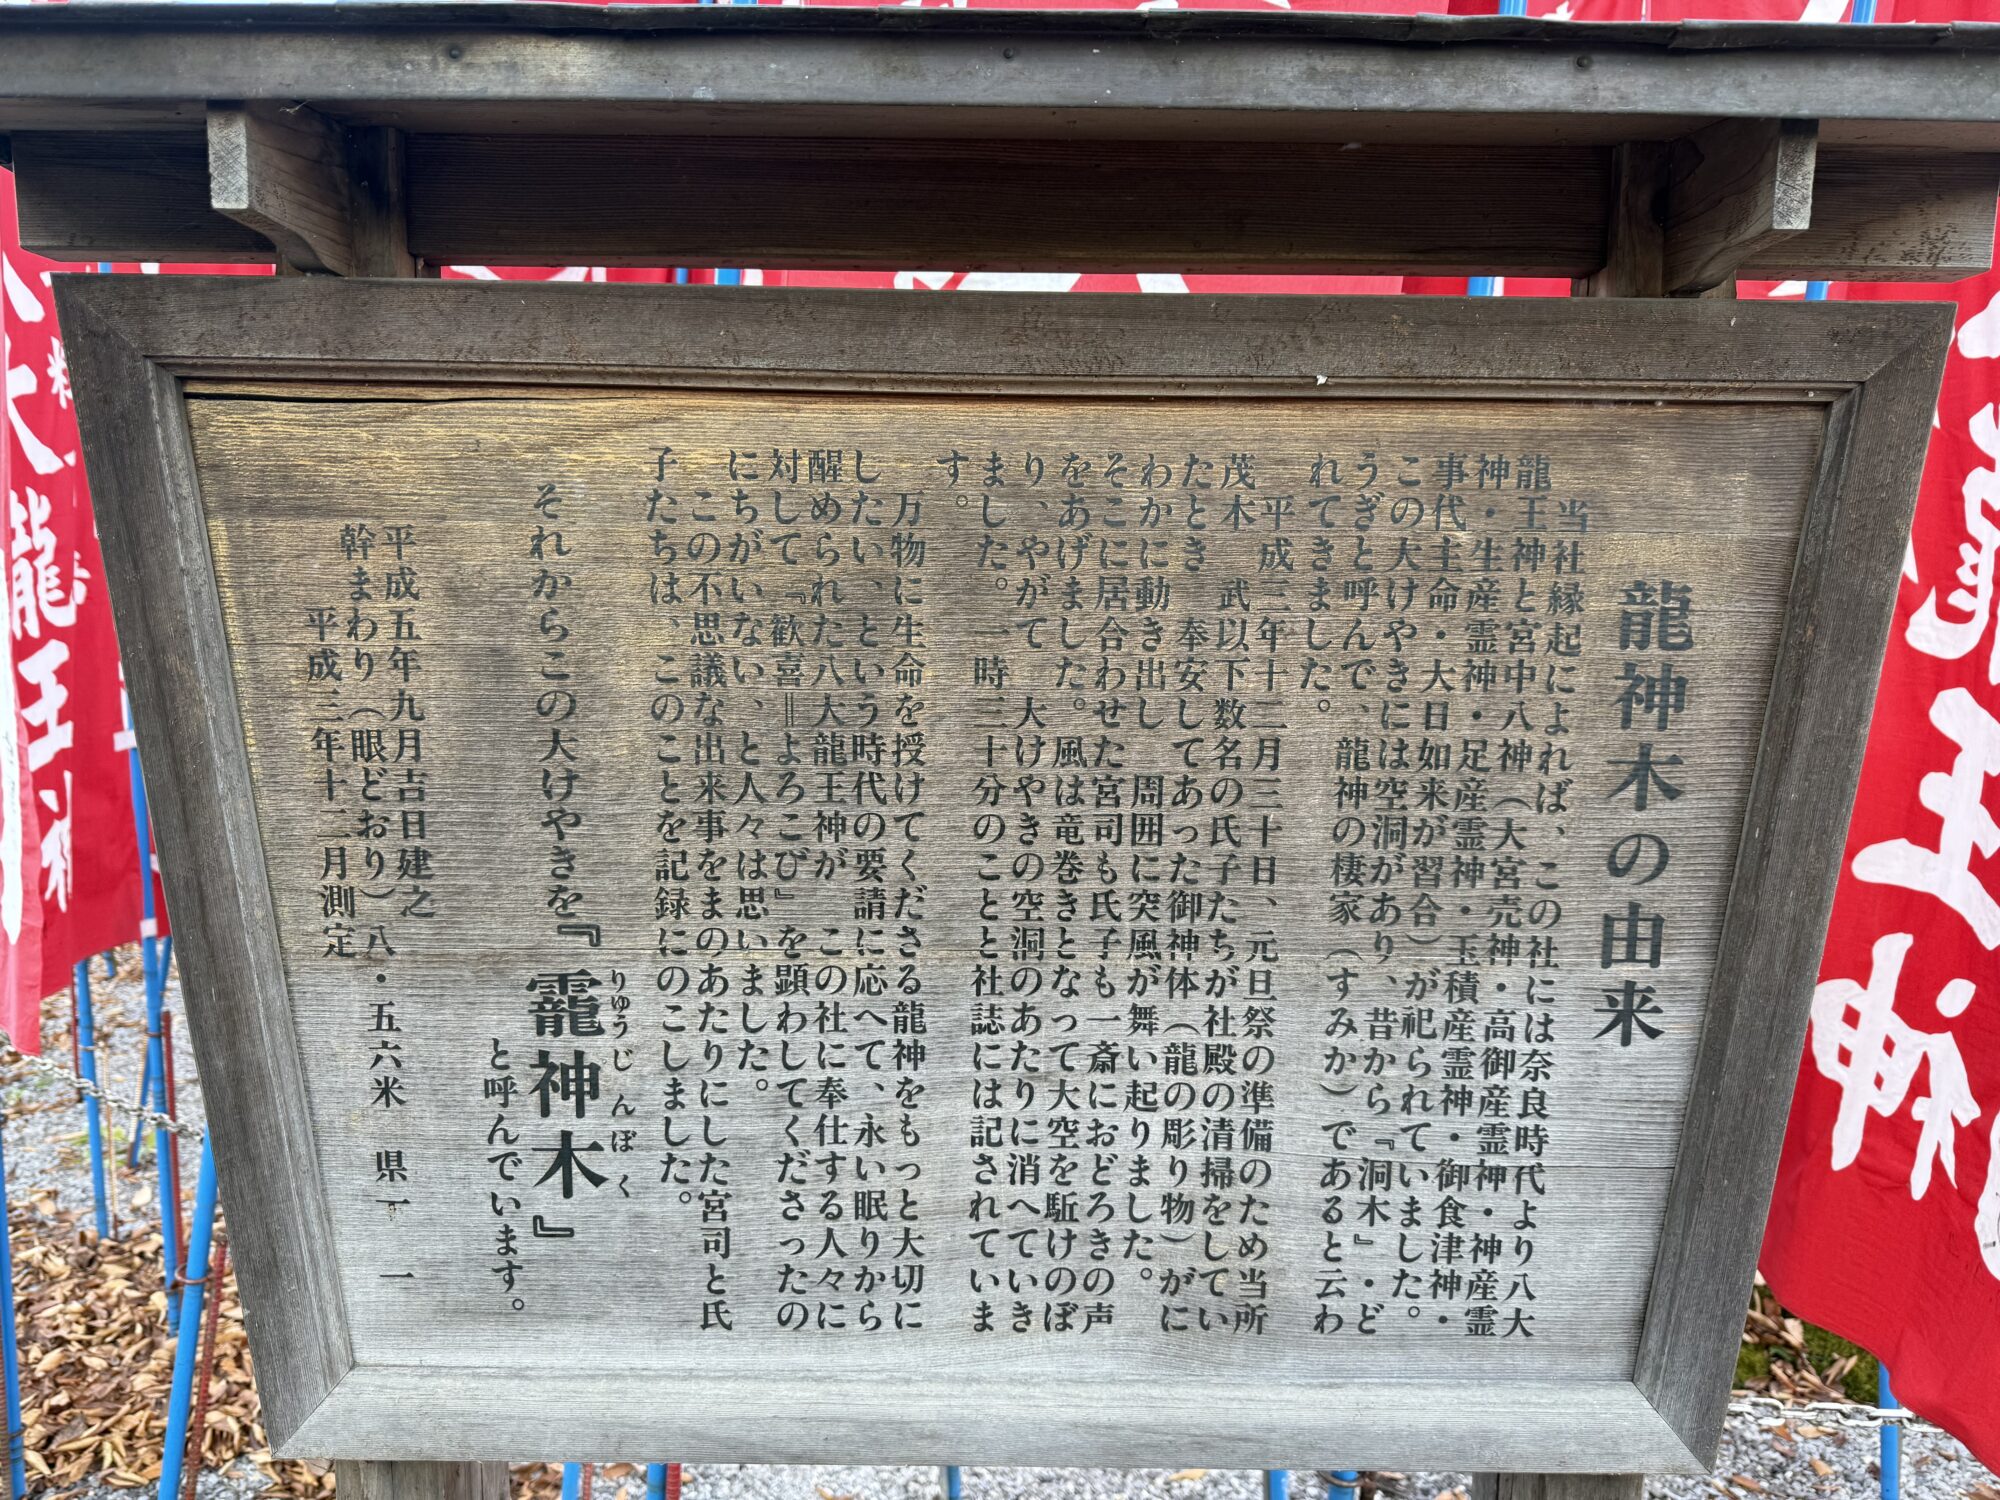 龍神木の由来
当社縁起によれば、この社には奈良時代より八大
龍王神と宮中八神（大宮売神・高御産霊神・神産霊
神・生産霊神・足産霊神・玉積産霊神・御食津神・
事代主命・大日如来が習合）が祀られていました。
この大けやきには空洞があり、昔から『洞木』・ど
うぎと呼んで、龍神の棲家（すみか）であると云わ
れてきました。
平成三年十二月三十日、元旦祭の準備のため当所
茂木 武以下数名の氏子たちが社殿の清掃をしてい
たとき 奉安してあった御神体（龍の彫り物）がに
わかに動き出し 周囲に突風が舞い起りました。
そこに居合わせた宮司も氏子も一斎におどろきの声
をあげました。風は竜巻きとなって大空を駈けのぼ
り、やがて 大けやきの空洞のあたりに消へていき
ました。一時三十分のことと社誌には記されていま
す。
万物に生命を授けてくださる龍神をもっと大切に
したい、という時代の要請に応へて、永い眠りから
醒められた八大龍王神が この社に奉仕する人々に
対して『歓喜＝よろこび』を顕わしてくださったの
にちがいない、と人々は思いました。
この不思議な出来事をまのあたりにした宮司と氏
子たちは、このことを記録にのこしました。
それからこの大けやきを『靇神木』
りゅうじんぼく
と呼んでいます。
平成五年九月吉日建之
幹まわり（眼どおり）八・五六米 県一
平成三年十二月測定
龍王神
大龍王神